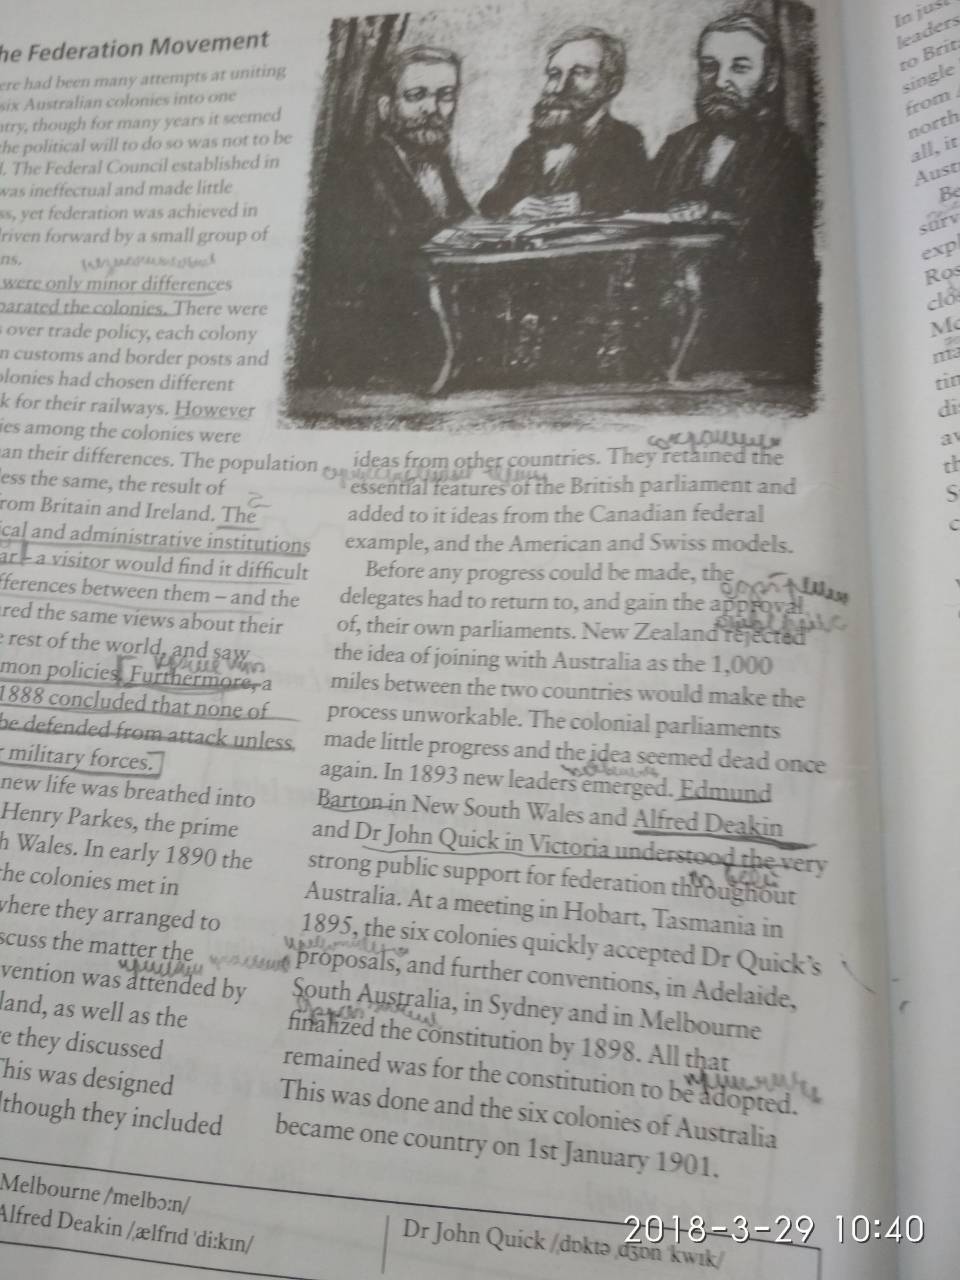 he Federation Movement
ere had been many attempts at uniting
six Australian colonies into one
ntry, though for many years it seemed
the political will to do so was not to be
. The Federal Council established in
was ineffectual and made little
ss, yet federation was achieved in
riven forward by a small group of
ns.
were only minor differences
parated the colonies. There were
over trade policy, each colony
n customs and border posts and
olonies had chosen different
k for their railways. However
ies among the colonies were
an their differences. The population
less the same, the result of
rom Britain and Ireland. The
ical and administrative institutions
ar – a visitor would find it difficult
fferences between them – and the
red the same views about their
e rest of the world, and saw
mon policies. Furthermore, a
1888 concluded that none of
be defended from attack unless
r military forces.
new life was breathed into
Henry Parkes, the prime
h Wales. In early 1890 the
he colonies met in
where they arranged to
scuss the matter the
vention was attended by
land, as well as the
e they discussed
This was designed
lthough they included
ideas from other countries. They retained the
essential features of the British parliament and
added to it ideas from the Canadian federal
example, and the American and Swiss models.
Before any progress could be made, the
delegates had to return to, and gain the approval
of, their own parliaments. New Zealand rejected
the idea of joining with Australia as the 1,000
miles between the two countries would make the
process unworkable. The colonial parliaments
made little progress and the idea seemed dead once
again. In 1893 new leaders emerged. Edmund
Barton in New South Wales and Alfred Deakin
and Dr John Quick in Victoria understood the very
strong public support for federation throughout
Australia. At a meeting in Hobart, Tasmania in
1895, the six colonies quickly accepted Dr Quick's
proposals, and further conventions, in Adelaide,
South Australia, in Sydney and in Melbourne
finalized the constitution by 1898. All that
remained was for the constitution to be adopted.
This was done and the six colonies of Australia
became one country on 1st January 1901.
Melbourne /melbɔːn/
Alfred Deakin /ˌælfrɪd ˈdiːkɪn/
Dr John Quick /ˌdɒktə ˌdʒɒn ˈkwɪk/
In just
leaders
to Brit
single
from
north
all, it
Aust
Be
surv
expl
Ros
clo
Mc
ma
tin
di
av
th
S
c
2018-3-29 10:40